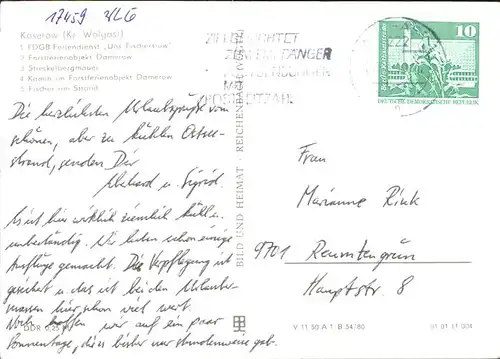 17459 VLG
Koserow (Kr. Wolgast)
1 FDGB-Feriendienst „Uns Fischerstuw"
2 Forstferienobjekt Damerow
3 Streckelbergmaun
4 Kamin im Forstferienobjekt Damerow
5 Fischer am Strand
EMPFÄNGER
MIT
POSTLEITZAHL
10
DEUTSCHE DEMOKRATISCHE REPUBLIK
Die herzlichsten Urlaubsgrüße vom
schönen, aber zu kühlen Ostsee-
strand, senden Dir
Eberhard u. Sigrid.
Es ist hier wirklich ziemlich kühl u.
unbeständig. Wir haben schon einige
Ausflüge gemacht. Die Verpflegung ist
gesichert u. das ist bei den Urlauber-
massen hier schon viel wert.
Noch hoffen wir auf ein paar
Sonnentage, die es bisher nur stundenweise gab.
BILD UND HEIMAT · REICHENBACH
Frau
Marianne Rink
9701 Reumtengrün
Hauptstr. 8
DDR 0,25 M
V 11 50 A 1 B 54/80
01 01 11 004